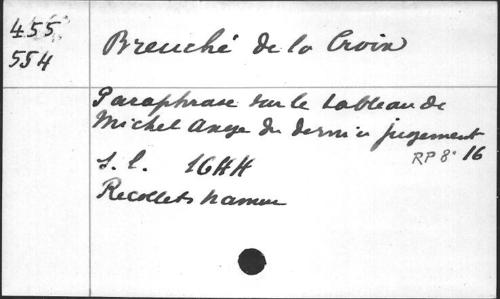 455
554
Breuché de la Croix
Paraphrase sur le tableau de
Michel Ange du dernier jugement
RP 8° 16
s. l. 1644
Recollets Namur